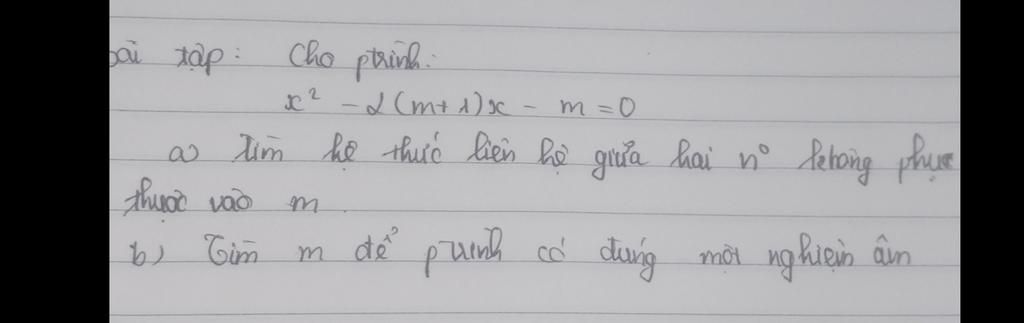 bài tập: Cho ptrình:
x² - 2(m+1)x - m = 0
a) Tìm hệ thức liên hệ giữa hai n⁰ không phụ
thuộc vào m.
b) Tìm m để ptrình có đúng một nghiệm âm